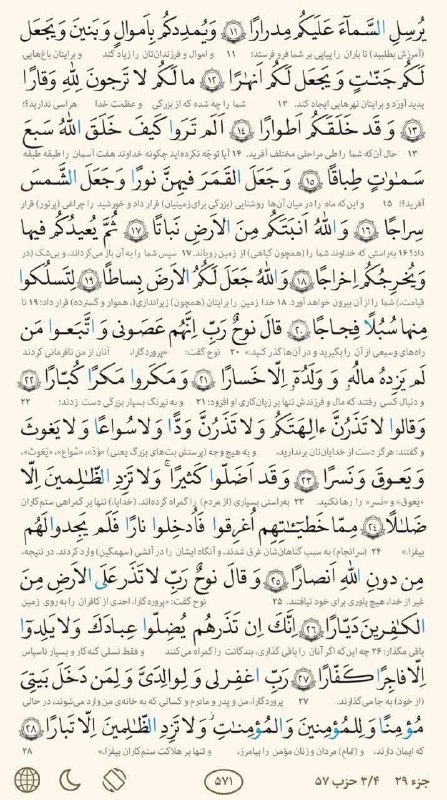 یُرسِلِ السَّمآءَ عَلَیکُم مِدرارًا ﴿۱۱﴾ وَ یُمدِدکُم بِاَموالٍ وَ بَنینَ وَ یَجعَل
(آمرزش بطلبید) تا باران را پیاپی بر شما فرو فرستد؛ ۱۱ و اموال و فرزندان‌تان را زیاد کند و برایتان باغ‌هایی
لَکُم جَنّٰتٍ وَ یَجعَل لَکُم اَنهٰرًا ﴿۱۲﴾ ما لَکُم لا تَرجونَ لِلّٰهِ وَقارًا
پدید آورد و برایتان نهرهایی ایجاد کند. ۱۲ شما را چه شده که از بزرگی و عظمت خدا هراسی ندارید؟!
﴿۱۳﴾ وَ قَد خَلَقَکُم اَطوارًا ﴿۱۴﴾ اَلَم تَرَوا کَیفَ خَلَقَ اللهُ سَبعَ
۱۳ حال آن‌که شما را طی مراحلی مختلف آفرید. ۱۴ آیا توجّه نکرده‌اید چگونه خداوند هفت آسمان را طبقه طبقه
سَمٰوٰتٍ طِباقًا ﴿۱۵﴾ وَ جَعَلَ القَمَرَ فیهِنَّ نورًا وَ جَعَلَ الشَّمسَ
آفرید؟! ۱۵ و این‌که ماه را در میان آن‌ها روشنایی (بزرگی برای زمینیان) قرار داد و خورشید را چراغی (پرنور) قرار
سِراجًا ﴿۱۶﴾ وَ اللهُ اَنبَتَکُم مِنَ الاَرضِ نَباتًا ﴿۱۷﴾ ثُمَّ یُعیدُکُم فیها
داد؟! ۱۶ به‌راستی که خداوند شما را (همچون گیاهی) از زمین رویاند. ۱۷ سپس شما را به آن باز می‌گرداند، و بی‌شک (در
وَ یُخرِجُکُم اِخراجًا ﴿۱۸﴾ وَ اللهُ جَعَلَ لَکُمُ الاَرضَ بِساطًا ﴿۱۹﴾ لِتَسلُکوا
قیامت،) شما را از آن بیرون خواهد آورد. ۱۸ خدا زمین را برایتان (همچون) زیراندازی (، هموار و گسترده) قرار داد؛ ۱۹ تا
مِنها سُبُلًا فِجاجًا ﴿۲۰﴾ قالَ نوحٌ رَبِّ اِنَّهُم عَصَونی وَ اتَّبَعوا مَن
راه‌های وسیعی از آن را بگیرید و در آن‌ها گذر کنید.» ۲۰ نوح گفت: «پروردگارا، آنان از من نافرمانی کردند
لَم یَزِدهُ مالُهُ و وَلَدُهُ اِلّا خَسارًا ﴿۲۱﴾ وَ مَکَروا مَکرًا کُبّارًا ﴿۲۲﴾
و دنبال کسی رفتند که مال و فرزندش تنها بر زیان‌کاری او افزود؛ ۲۱ و به نیرنگ بسیار بزرگی دست زدند؛ ۲۲
وَ قالوا لا تَذَرُنَّ ءالِهَتَکُم وَ لا تَذَرُنَّ وَدًّا وَ لا سُواعًا وَ لا یَغوثَ
و گفتند: هرگز دست از خدایان‌تان برندارید، و به هیچ وجه (پرستش بت‌های بزرگ یعنی) «وَدّ»، «سُواع»، «یَغوث»،
وَ یَعوقَ وَ نَسرًا ﴿۲۳﴾ وَ قَد اَضَلّوا کَثیرًا ۖ وَ لا تَزِدِ الظّٰلِمینَ اِلّا
«یَعوق» و «نَسر» را رها نکنید. ۲۳ به‌راستی بسیاری (از مردم) را گمراه کرده‌اند. (خدایا،) تنها بر گمراهی ستم‌کاران
ضَلٰلًا ﴿۲۴﴾ مِمّا خَطیـٰٔتِهِم اُغرِقوا فَاُدخِلوا نارًا فَلَم یَجِدوا لَهُم
بیفزا.» ۲۴ (سرانجام) به سبب گناهان‌شان غرق شدند، و آنگاه ایشان را در آتشی (سهمگین) وارد کردند. در نتیجه،
مِن دونِ اللهِ اَنصارًا ﴿۲۵﴾ وَ قالَ نوحٌ رَبِّ لا تَذَر عَلَی الاَرضِ مِنَ
غیر از خدا، هیچ یاوری برای خود نیافتند. ۲۵ نوح گفت: «پروردگارا، احدی از کافران را به روی زمین
الکٰفِرینَ دَیّارًا ﴿۲۶﴾ اِنَّکَ اِن تَذَرهُم یُضِلّوا عِبادَکَ وَ لا یَلِدوا
باقی مگذار؛ ۲۶ چه این‌که اگر آنان را باقی گذاری، بندگانت را گمراه می‌کنند و فقط نسلی گنه‌کار و بسیار ناسپاس
اِلّا فاجِرًا کَفّارًا ﴿۲۷﴾ رَبِّ اغفِر لی وَ لِوالِدَیَّ وَ لِمَن دَخَلَ بَیتِیَ
(از خود) به جا می‌گذارند. ۲۷ پروردگارا، من و پدر و مادرم و کسانی که به خانه‌ی من وارد می‌شوند، در حالی
مُؤمِنًا وَ لِلمُؤمِنینَ وَ المُؤمِنٰتِ وَ لا تَزِدِ الظّٰلِمینَ اِلّا تَبارًا ﴿۲۸﴾
که ایمان دارند، و (تمام) مردان و زنان مؤمن را بیامرز، و تنها بر هلاکت ستم‌کاران بیفزا.» ۲۸
جزء ۲۹ ۳/۴ حزب ۵۷ ۵۷۱